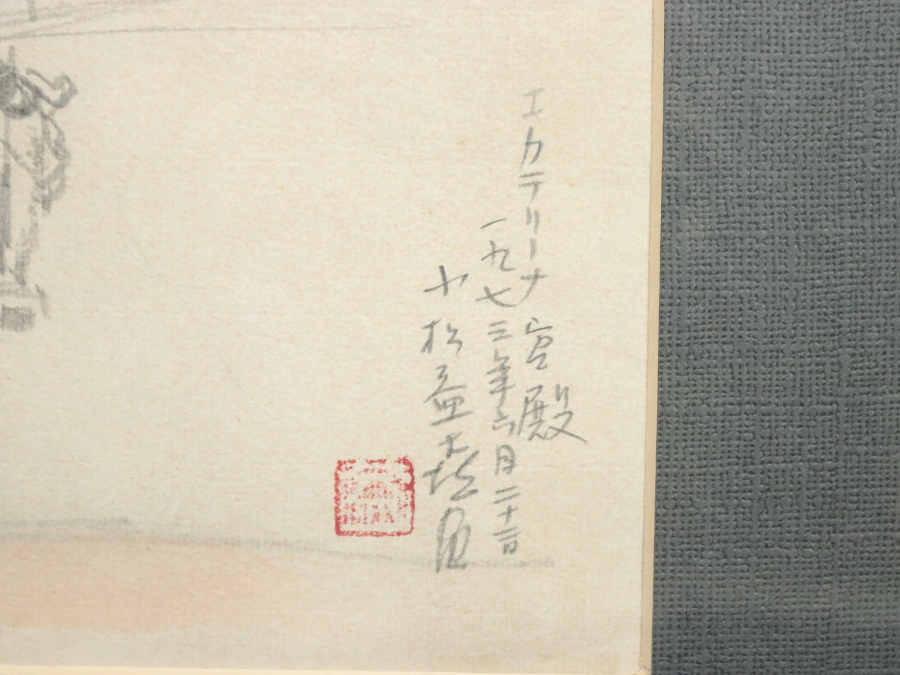 エカテリーナ宮殿
一九七三年六月二十三日
小松益喜画